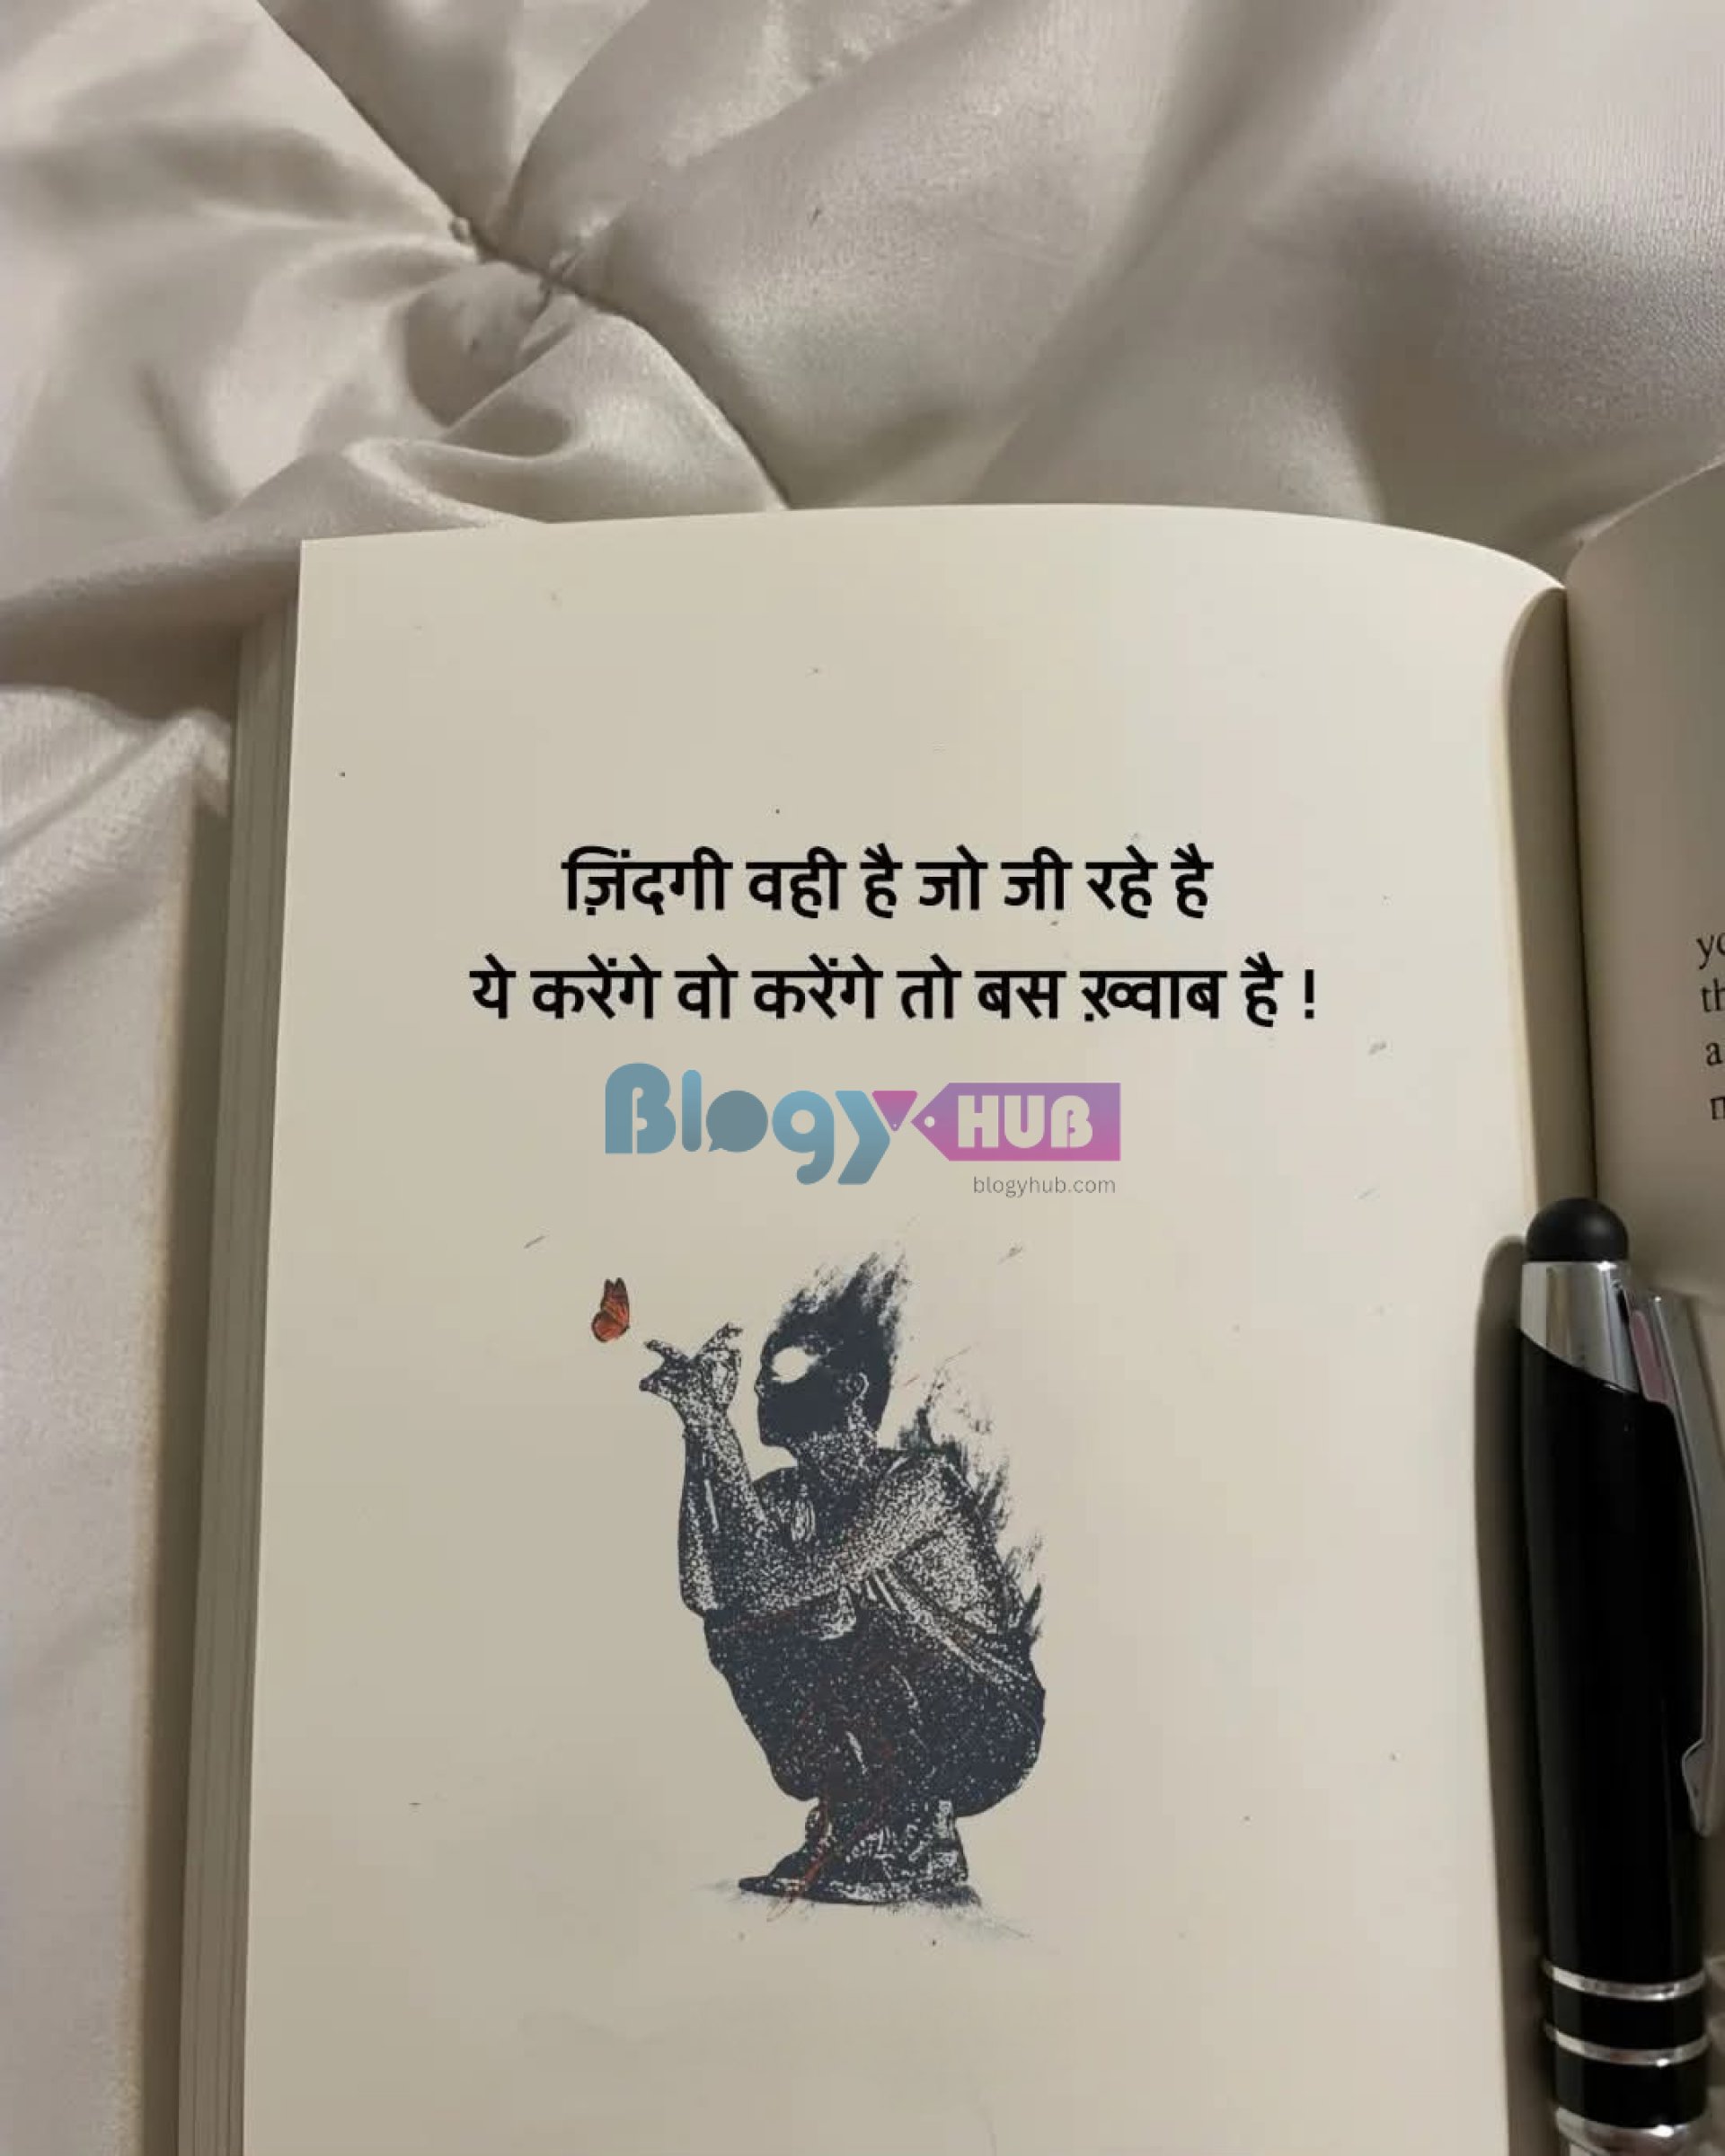 ज़िंदगी वही है जो जी रहे है
ये करेंगे वो करेंगे तो बस ख़्वाब है !
Blogy HUB
blogyhub.com
a